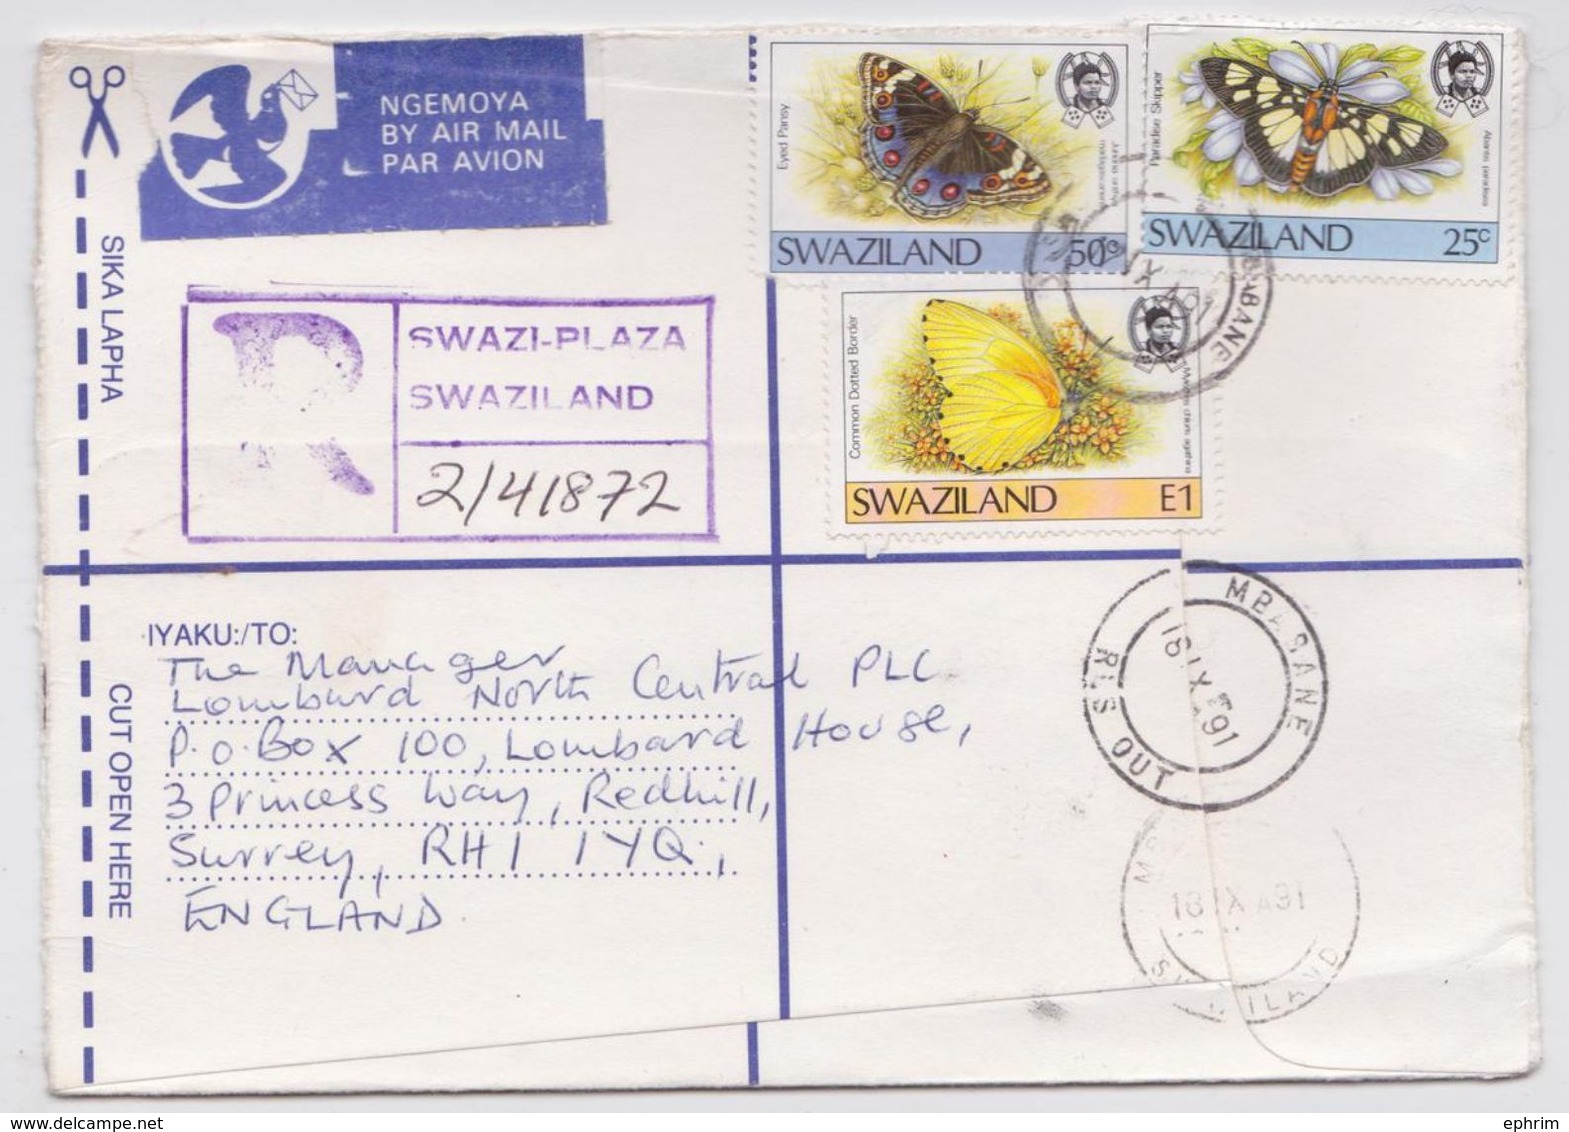 NGEMOYA
BY AIR MAIL
PAR AVION
Eyed Pansy
SWAZILAND 50c
Paradise Skipper
Abantis paradisea
SWAZILAND 25c
Common Dotted Border
SWAZILAND E1
SIKA LAPHA
R
SWAZI-PLAZA
SWAZILAND
2/41872
CUT OPEN HERE
IYAKU:/TO:
The Manager
Lombard North Central PLC
P.O.Box 100, Lombard House,
3 Princess Way, Redhill,
Surrey, RH1 1YQ,
ENGLAND.
MBABANE
18 IX 91
RLS OUT
18 IX A91
ephrim